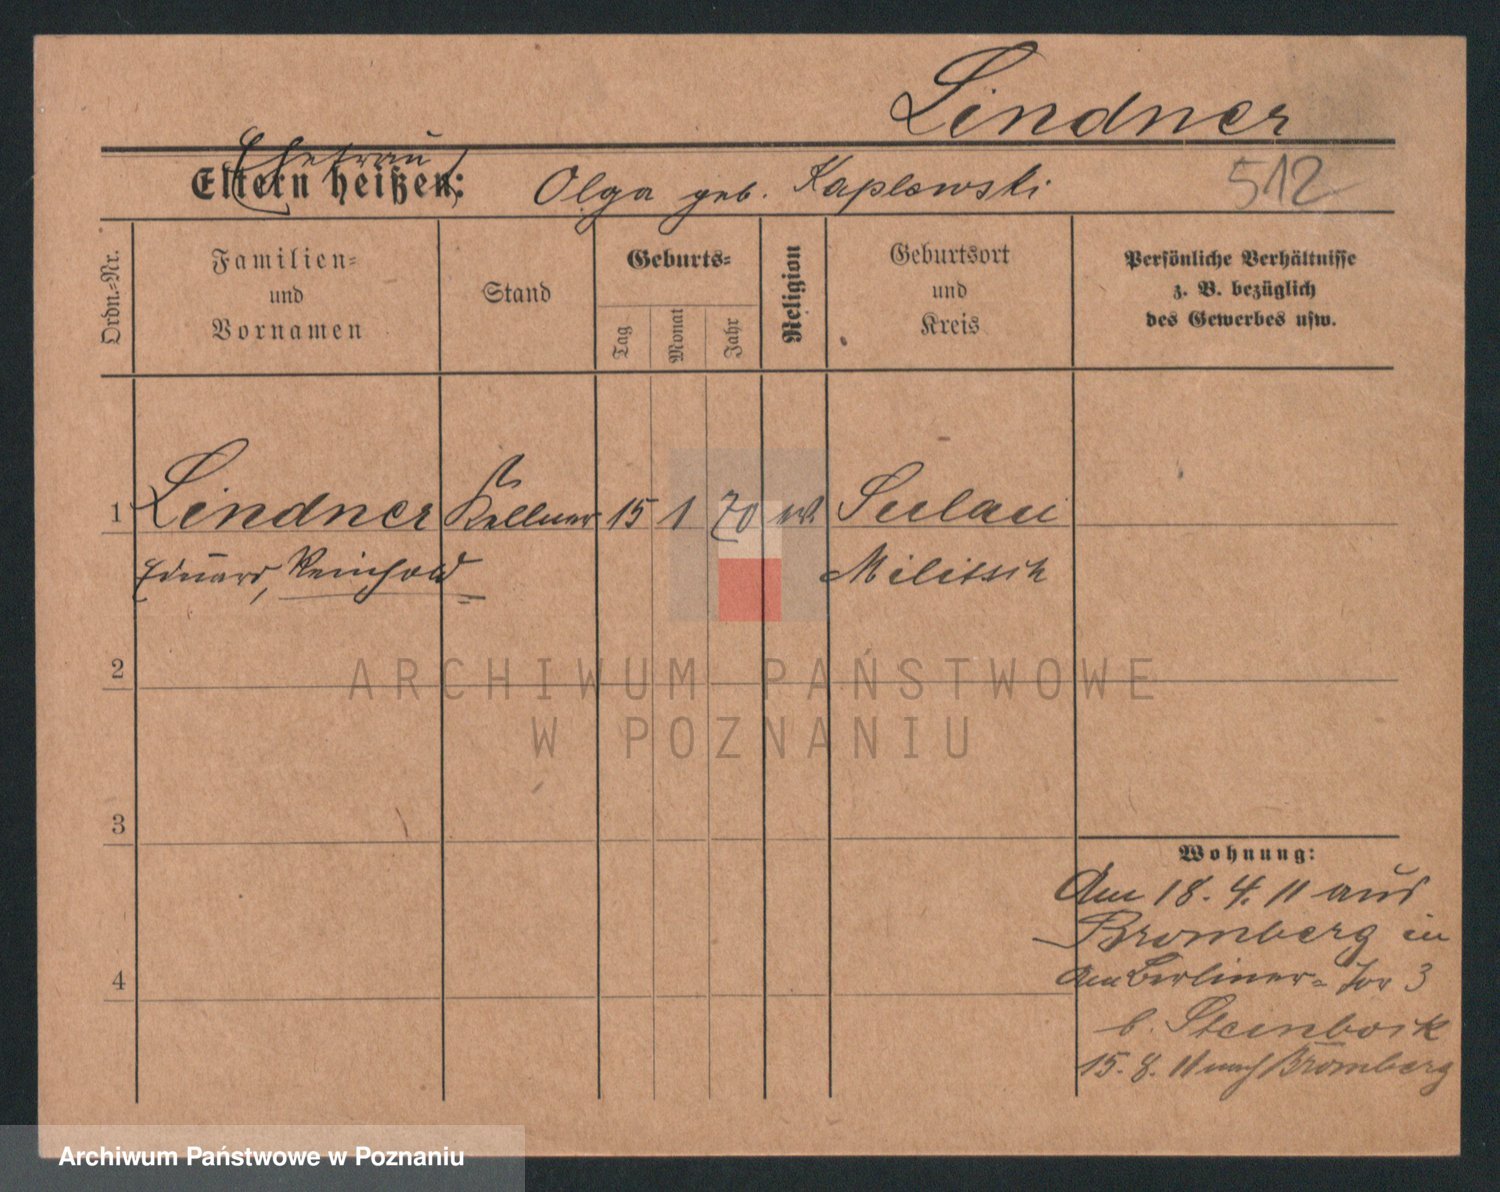 Lindner
Ehefrau
Eltern heißen: Olga geb. Kaplowski 512
Ordn.-Nr.
Familien-
und
Vornamen
Stand
Geburts-
Tag
Monat
Jahr
Religion
Geburtsort
und
Kreis
Persönliche Verhältnisse
z. B. bezüglich
des Gewerbes usw.
1 Lindner Kellner 15 1 70 Sulau
Eduard, Reinhold Militsch
2
ARCHIWUM PAŃSTWOWE
W POZNANIU
3
Wohnung:
Am 18. 4. 11 aus
Bromberg in
Am Berliner-Tor 3
4
b. Steinbock
15. 8. 11 nach Bromberg
Archiwum Państwowe w Poznaniu